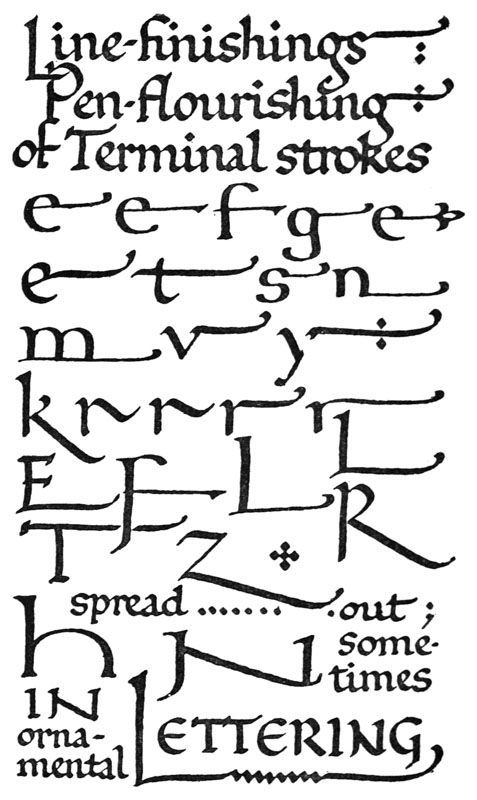 Line-finishings
Pen-flourishing
of Terminal strokes
e e f g e
e t s n
m v y
k r r r r
E F L L R
T Z
spread ....... out ;
h N some-
times
IN
orna-
mental LETTERING,